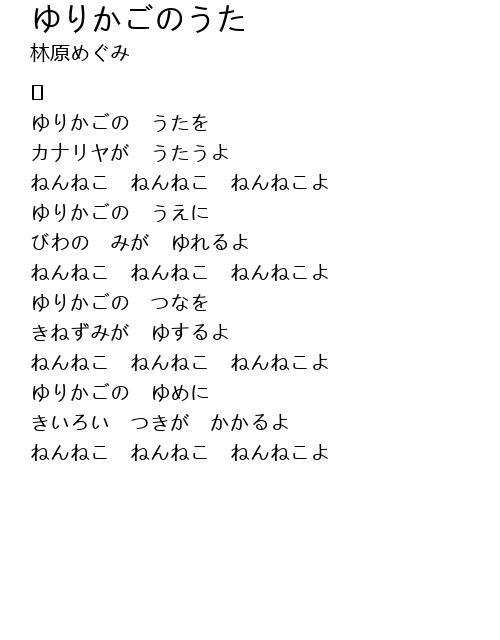 ゆりかごのうた
林原めぐみ
ゆりかごの　うたを
カナリヤが　うたうよ
ねんねこ　ねんねこ　ねんねこよ
ゆりかごの　うえに
びわの　みが　ゆれるよ
ねんねこ　ねんねこ　ねんねこよ
ゆりかごの　つなを
きねずみが　ゆするよ
ねんねこ　ねんねこ　ねんねこよ
ゆりかごの　ゆめに
きいろい　つきが　かかるよ
ねんねこ　ねんねこ　ねんねこよ